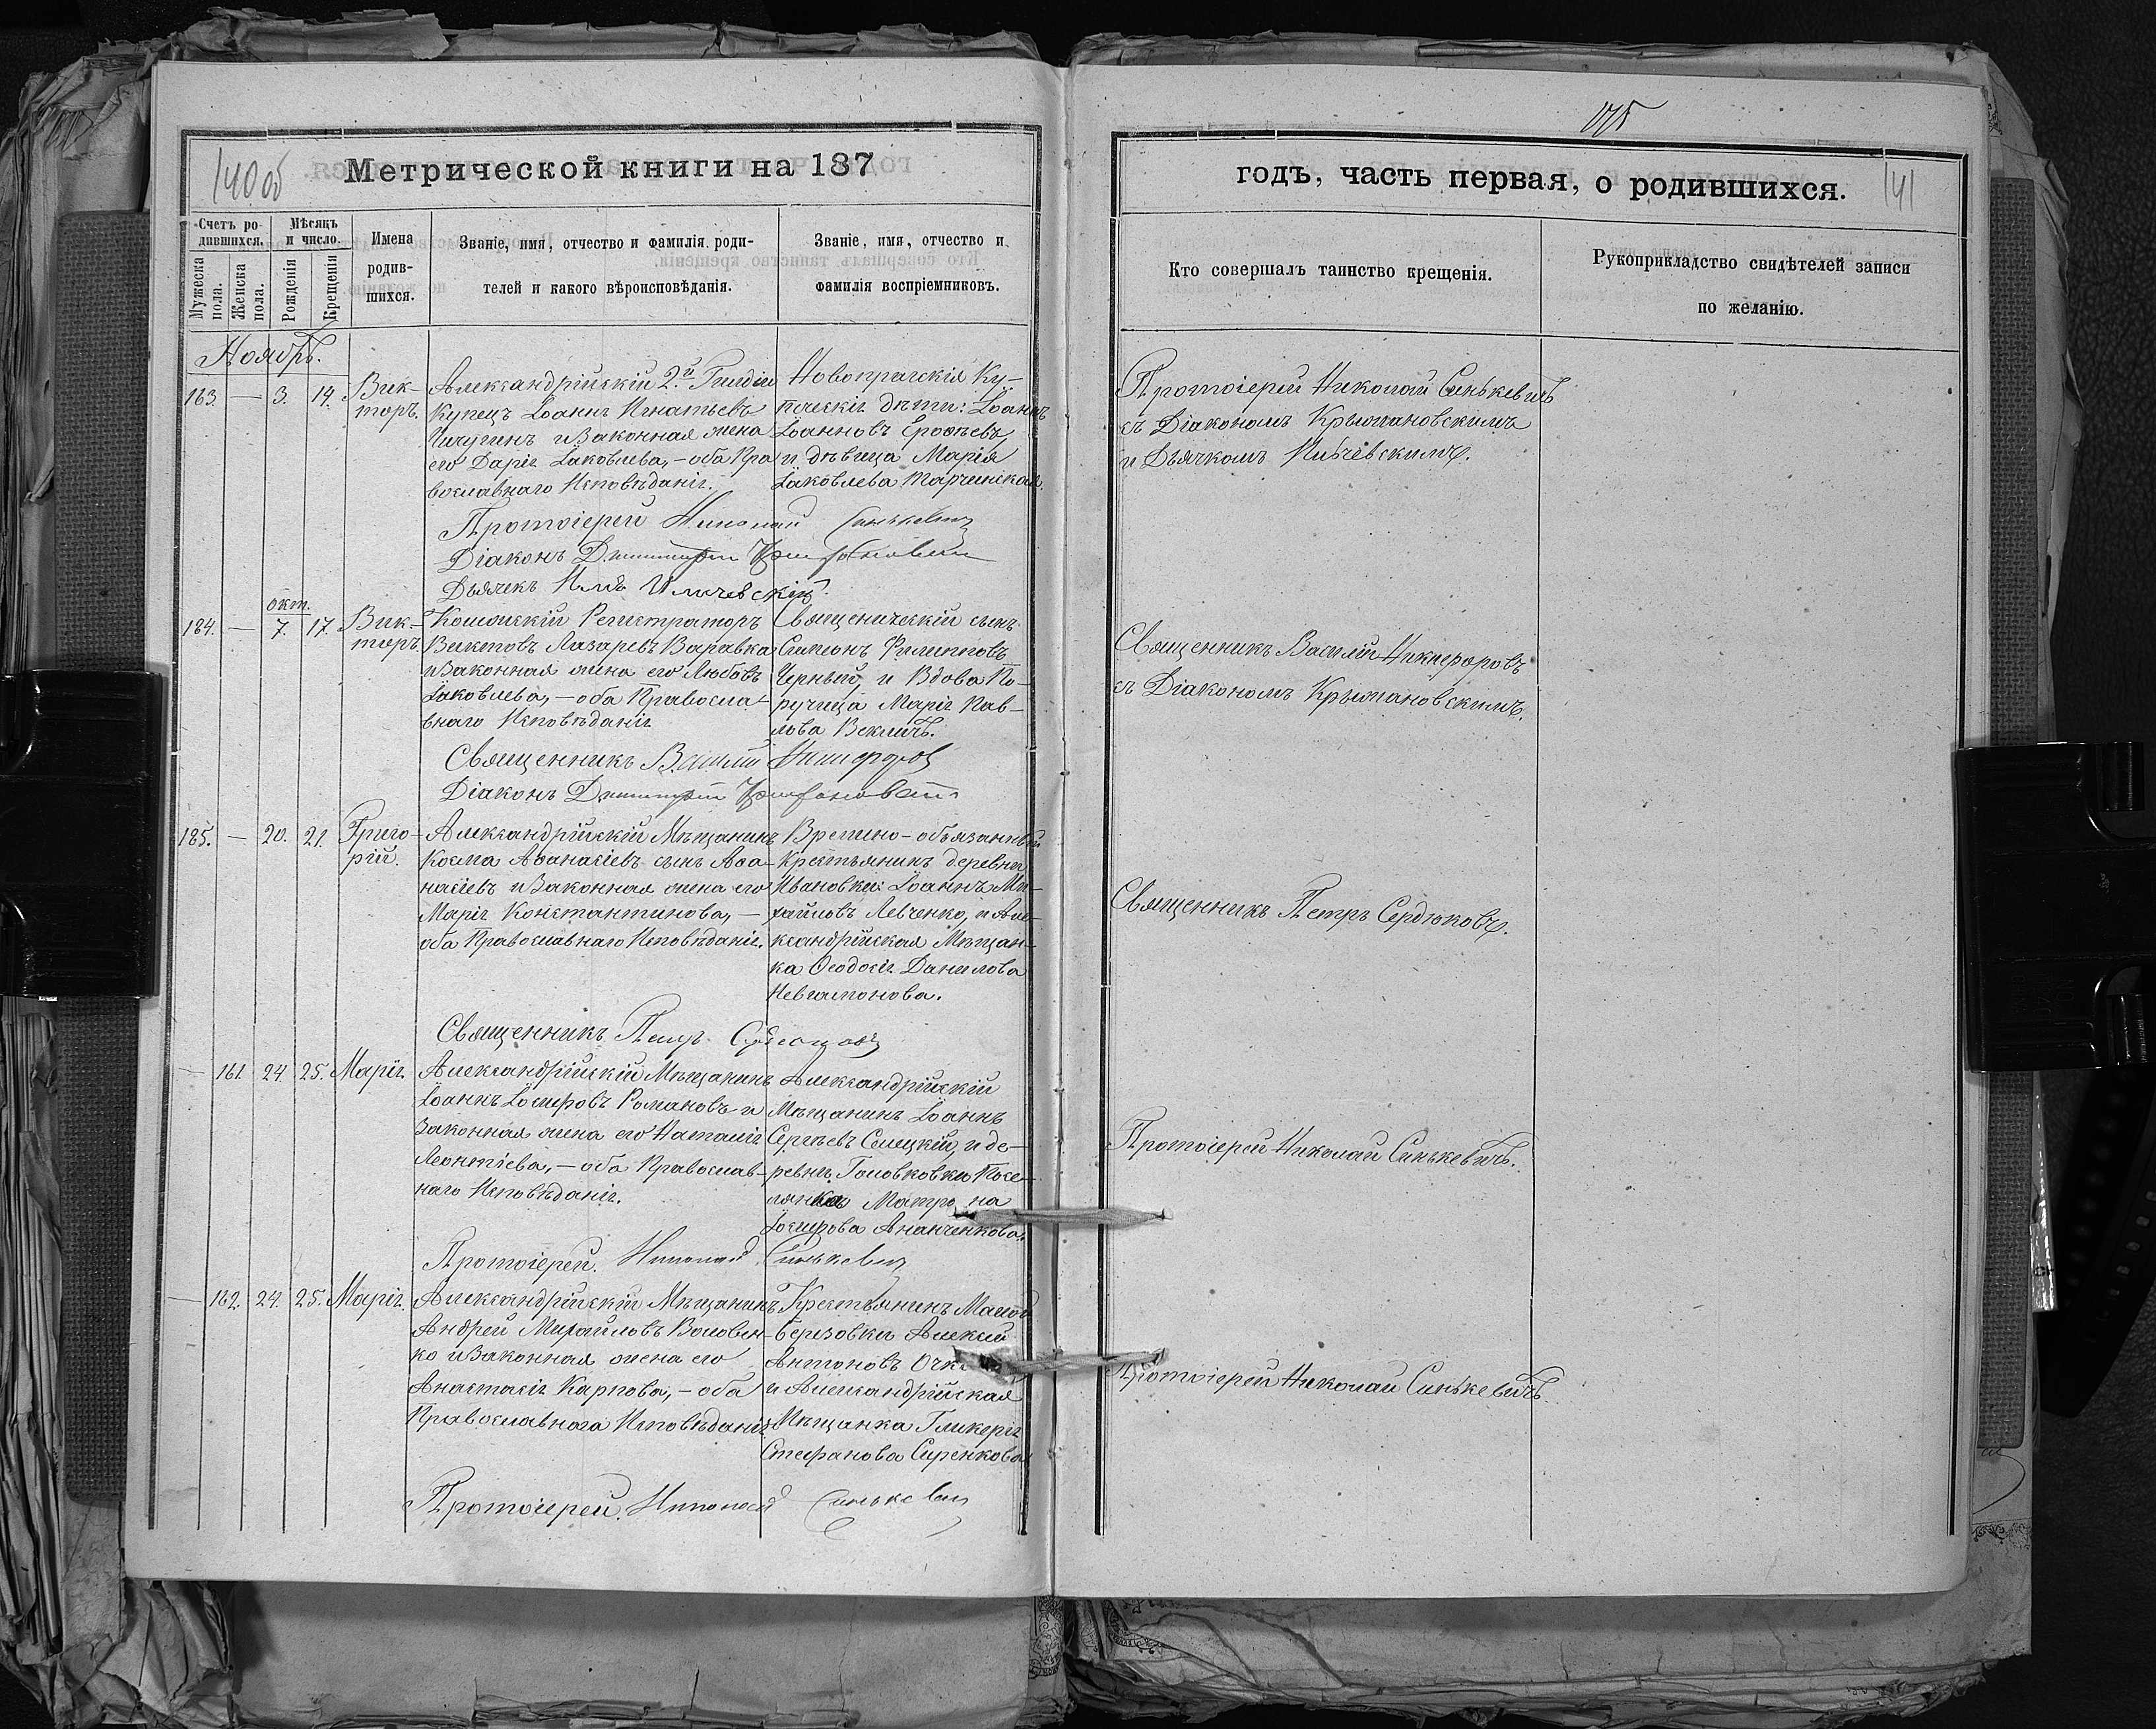 140 об
Метрической книги на 187
Счетъ ро-
дившихся.
Мѣсяцъ
и число.
Мужеска
пола.
Женска
пола.
Рожденія
Крещенія
Имена
родив-
шихся.
Званіе, имя, отчество и фамилія роди-
телей и какого вѣроисповѣданія.
Званіе, имя, отчество и
фамилія воспріемниковъ.
Ноябрь.
163. — 3. 14. Вик-
торъ.
Александрійскій 2й Гильдіи
Купецъ Іоаннъ Игнатьевъ
и законная жена
его Дарія Іаковлева, – оба Пра
вославнаго Исповѣданія.
Новопражскія Ку-
печескія дѣти: Іоаннъ
Іоанновъ Ероѳѣевъ,
и дѣвица Марія
Іаковлева
Протоіерей Николай Синькевичъ
Діаконъ Димитрій Крыжановскій
Дьячекъ
окт.
184. — 7. 17. Вик-
торъ
Колежскій Регистраторъ
Викторъ Лазаревъ Варавка
и законная жена его Любовь
Іаковлева, – оба Правосла-
внаго Исповѣданія.
Священическій сынъ
Симеонъ Филипповъ
Черный, и Вдова По-
ручица Марія Пав-
лова Векличъ.
Священникъ Василій Никифоровъ
Діаконъ Димитрій Крыжановскій
185. — 20. 21. Григо-
рій.
Александрійскій Мѣщанинъ
Косма Аѳанасіевъ сынъ Аѳа-
насіевъ и законная жена его
Марія Константинова, –
оба Православнаго Исповѣданія.
Времяно-обязанный
Крестьянинъ деревни
Ивановки: Іоаннъ Ми-
хайловъ Левченко, и Але-
ксандрійская Мѣщан-
ка Ѳеодосія Данилова
Евгамонова.
Священникъ Петръ Сердюковъ
— 161. 24. 25. Марія.
Александрійскій Мѣщанинъ
Іоаннъ Іосифовъ Романовъ и
законная жена его Наталія
Леонтіева, – оба Православ-
наго Исповѣданія.
Александрійскій
Мѣщанинъ Іоаннъ
Сергѣевъ Сѣлецкій, и де-
ревни Головковки Посе-
лянка Матрона
Іосифова Ананченкова.
Протоіерей Николай Синькевичъ
— 162. 24. 25. Марія.
Александрійскій Мѣщанинъ
Андрей Михайловъ Воловен-
ко и законная жена его
Анастасія Карпова, – оба
Православнаго Исповѣданія
Крестьянинъ Малой
Березовки Алексій
Антоновъ
и Александрійская
Мѣщанка Гликерія
Стефанова Сиренкова
Протоіерей Николай Синькевичъ
годъ, часть первая, о родившихся.
141
Кто совершалъ таинство крещенія.
Рукоприкладство свидѣтелей записи
по желанію.
Протоіерей Николай Синькевичъ
съ Діакономъ Крыжановскимъ
и Дьячкомъ
Священникъ Василій Никифоровъ
съ Діакономъ Крыжановскимъ.
Священникъ Петръ Сердюковъ.
Протоіерей Николай Синькевичъ.
Протоіерей Николай Синькевичъ.